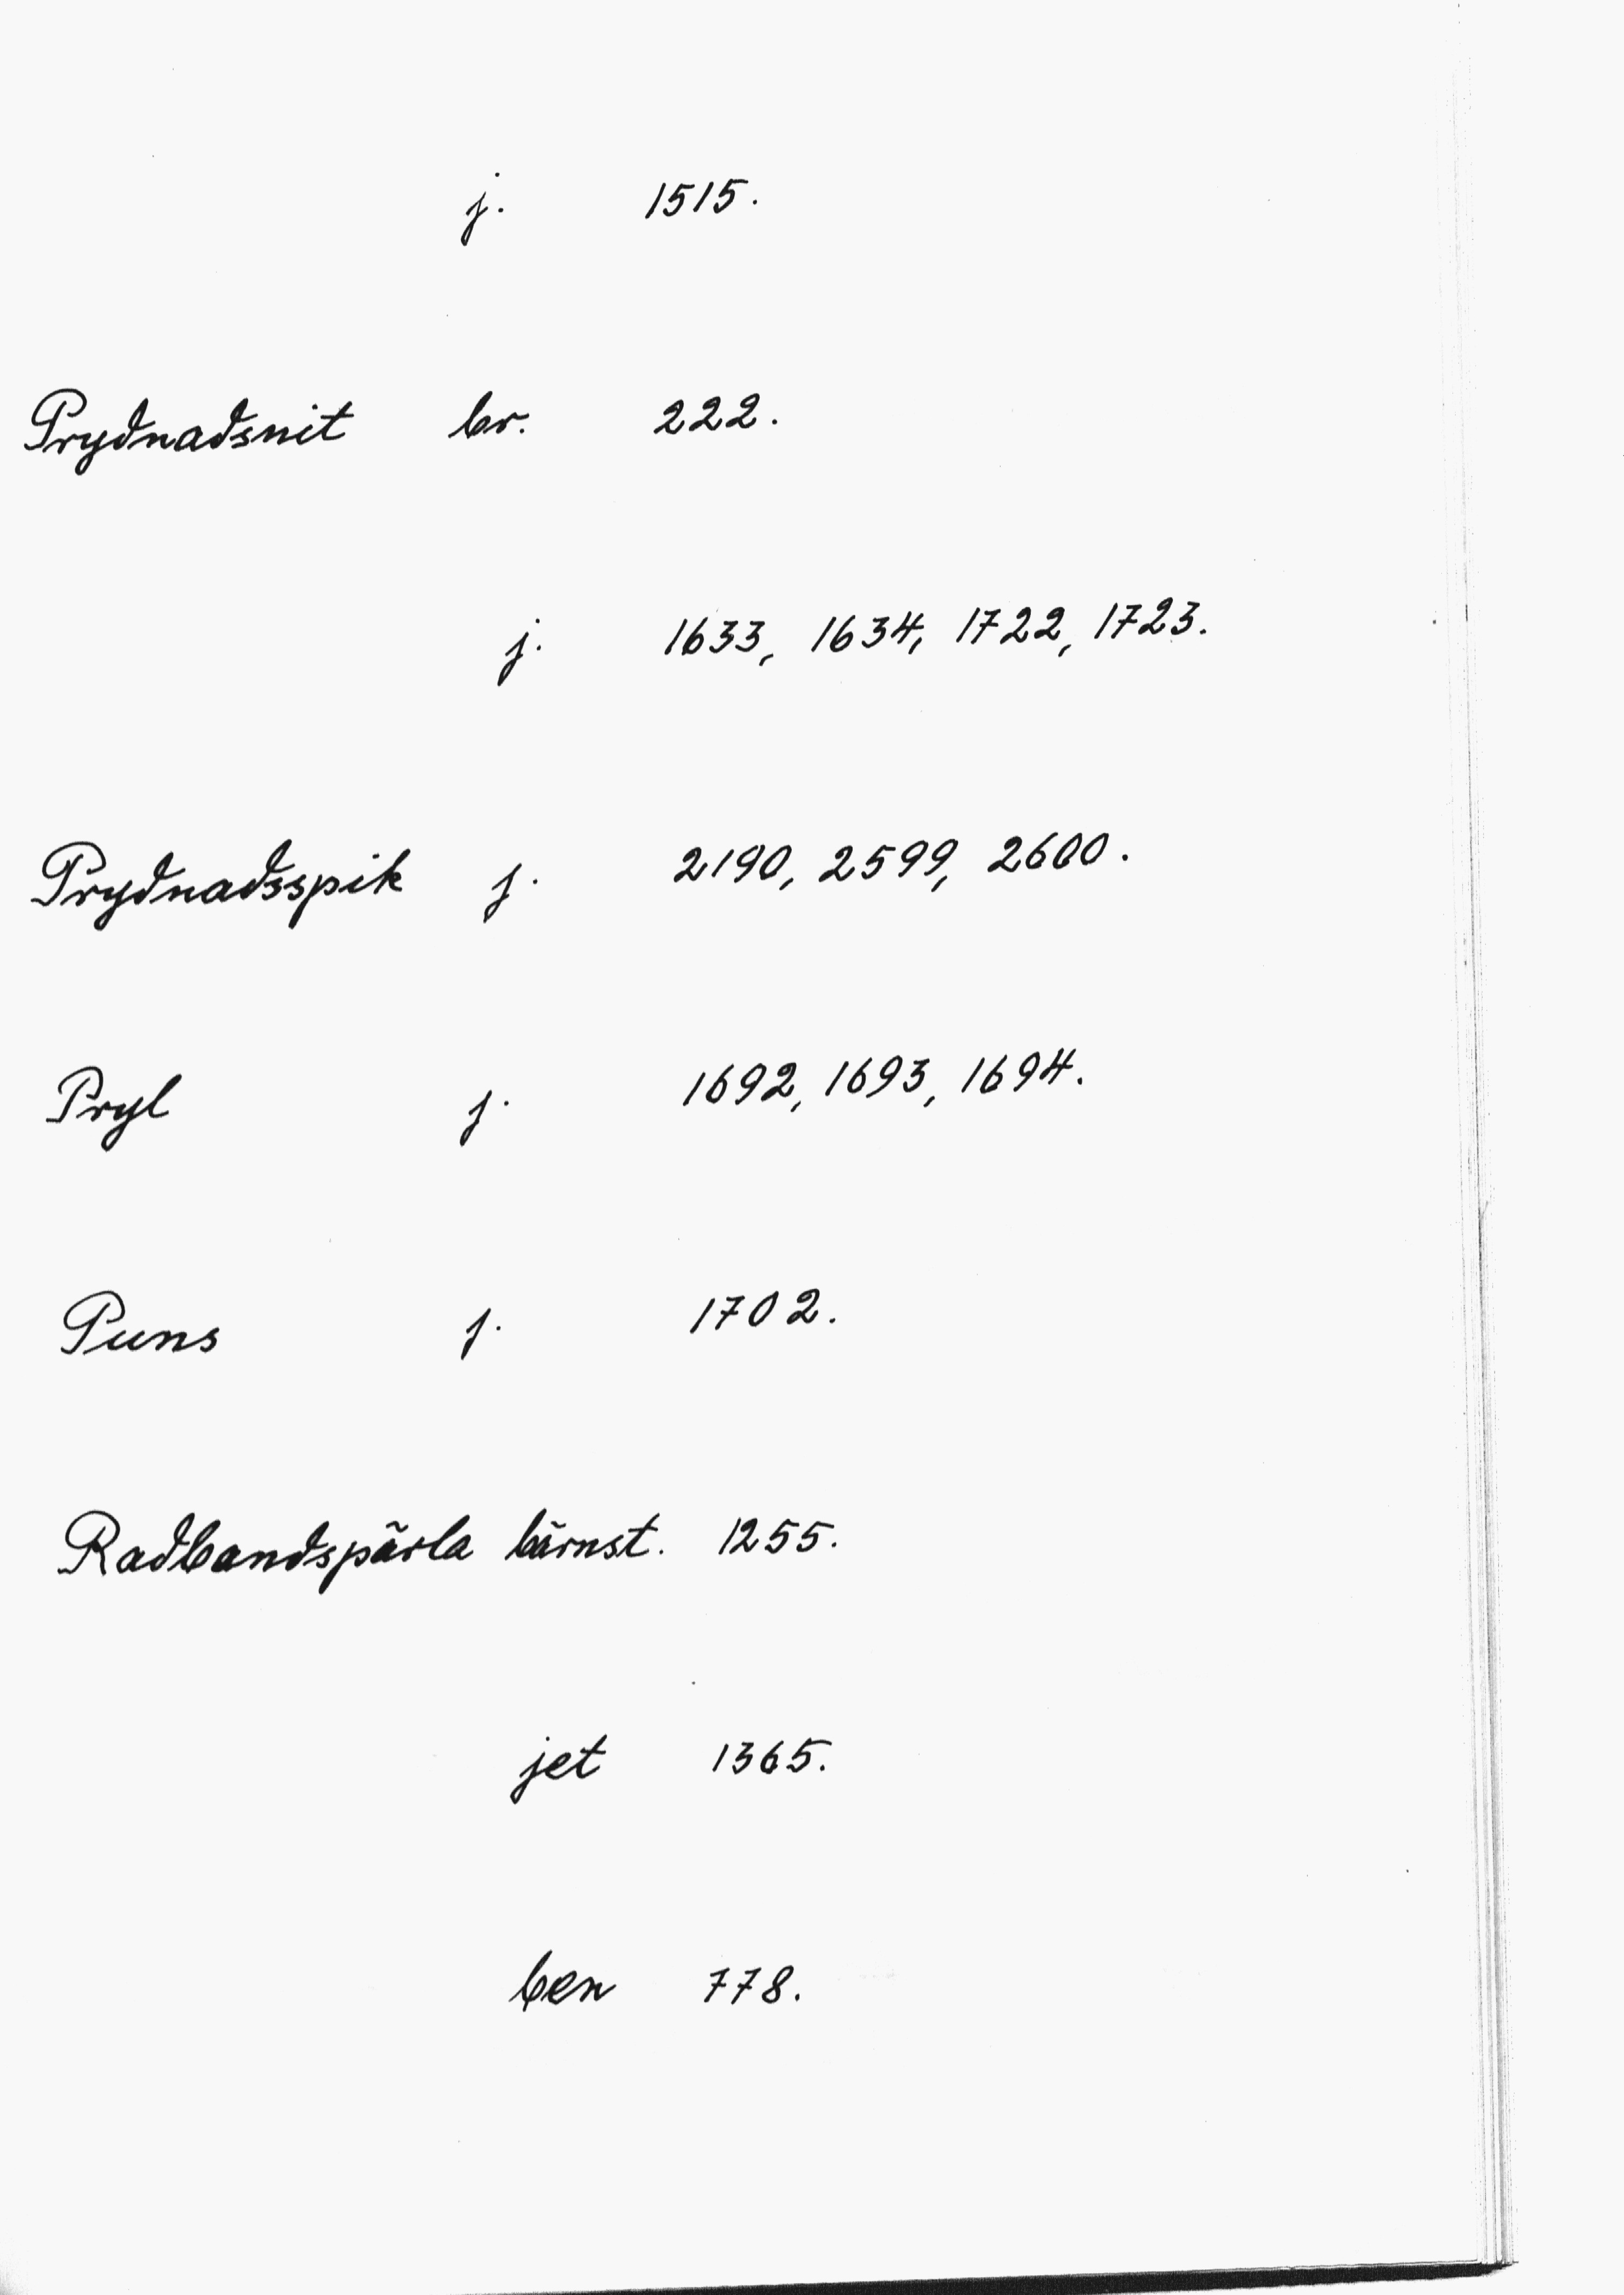 j. 1515.
Prydnadsnit br. 222.
j. 1633, 1634, 1722, 1723.
Prydnadsspik j. 2190, 2599, 2600.
Pryl j. 1692, 1693, 1694.
Puns j. 1702.
Radbandspärla bärnst. 1255.
jet 1365.
ben 778.